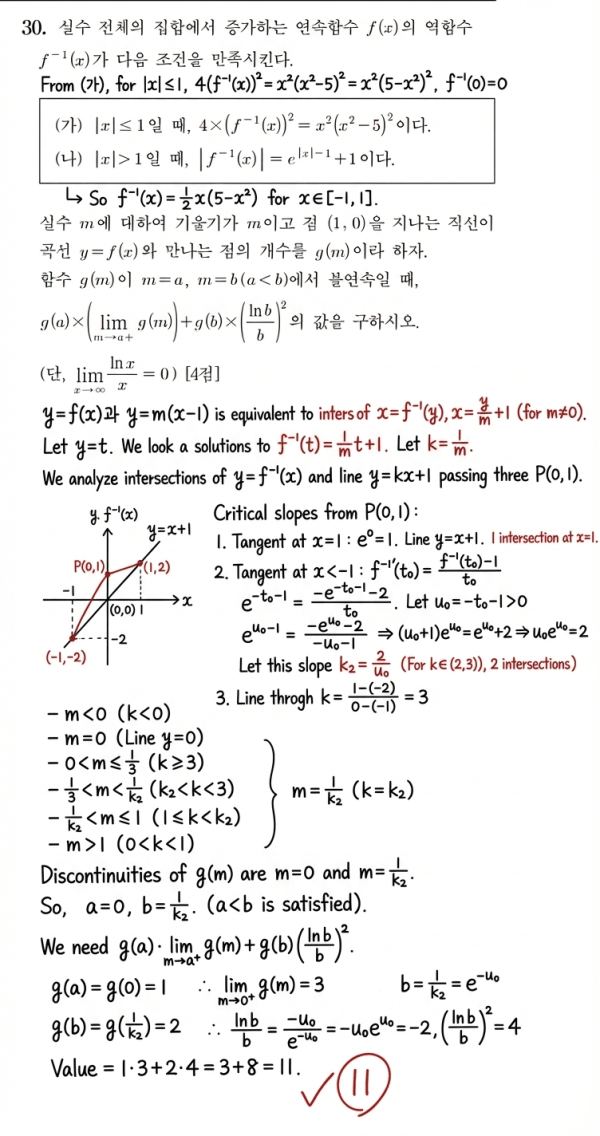 30. 실수 전체의 집합에서 증가하는 연속함수 f(x)의 역함수
f⁻¹(x)가 다음 조건을 만족시킨다.
From (가), for |x|≤1, 4(f⁻¹(x))²=x²(x²-5)²=x²(5-x²)², f⁻¹(0)=0
(가) |x|≤1일 때, 4×(f⁻¹(x))²=x²(x²-5)²이다.
(나) |x|>1일 때, |f⁻¹(x)|=e^{|x|-1}+1이다.
↳ So f⁻¹(x)=½x(5-x²) for x∈[-1,1].
실수 m에 대하여 기울기가 m이고 점 (1, 0)을 지나는 직선이
곡선 y=f(x)와 만나는 점의 개수를 g(m)이라 하자.
함수 g(m)이 m=a, m=b(a<b)에서 불연속일 때,
g(a)×(lim_{m→a+} g(m))+g(b)×(ln b/b)²의 값을 구하시오.
(단, lim_{x→∞} ln x/x = 0) [4점]
y=f(x)과 y=m(x-1) is equivalent to inters of x=f⁻¹(y), x=y/m+1 (for m≠0).
Let y=t. We look a solutions to f⁻¹(t)=1/m t+1. Let k=1/m.
We analyze intersections of y=f⁻¹(x) and line y=kx+1 passing three P(0,1).
y. f⁻¹(x)
y=x+1
P(0,1)
(1,2)
-1
(0,0) 1
x
-2
(-1,-2)
Critical slopes from P(0,1):
1. Tangent at x=1: e⁰=1. Line y=x+1. 1 intersection at x=1.
2. Tangent at x<-1: f⁻¹'(t₀)=(f⁻¹(t₀)-1)/t₀
e^{-t₀-1}=(-e^{-t₀-1}-2)/t₀. Let u₀=-t₀-1>0
e^{u₀-1}=(-e^{u₀}-2)/(-u₀-1) ⇒(u₀+1)e^{u₀}=e^{u₀}+2⇒u₀e^{u₀}=2
Let this slope k₂=2/u₀ (For k∈(2,3)), 2 intersections)
3. Line throgh k=(1-(-2))/(0-(-1))=3
- m<0 (k<0)
- m=0 (Line y=0)
- 0<m≤1/3 (k≥3)
- 1/3<m<1/k₂ (k₂<k<3)
- 1/k₂<m≤1 (1≤k<k₂)
- m>1 (0<k<1)
m=1/k₂ (k=k₂)
Discontinuities of g(m) are m=0 and m=1/k₂.
So, a=0, b=1/k₂. (a<b is satisfied).
We need g(a)·lim_{m→a+} g(m)+g(b)(ln b/b)².
g(a)=g(0)=1 ∴ lim_{m→0+} g(m)=3 b=1/k₂=e^{-u₀}
g(b)=g(1/k₂)=2 ∴ ln b/b=-u₀/e^{-u₀}=-u₀e^{u₀}=-2, (ln b/b)²=4
Value = 1·3+2·4=3+8=11.
✓ 11